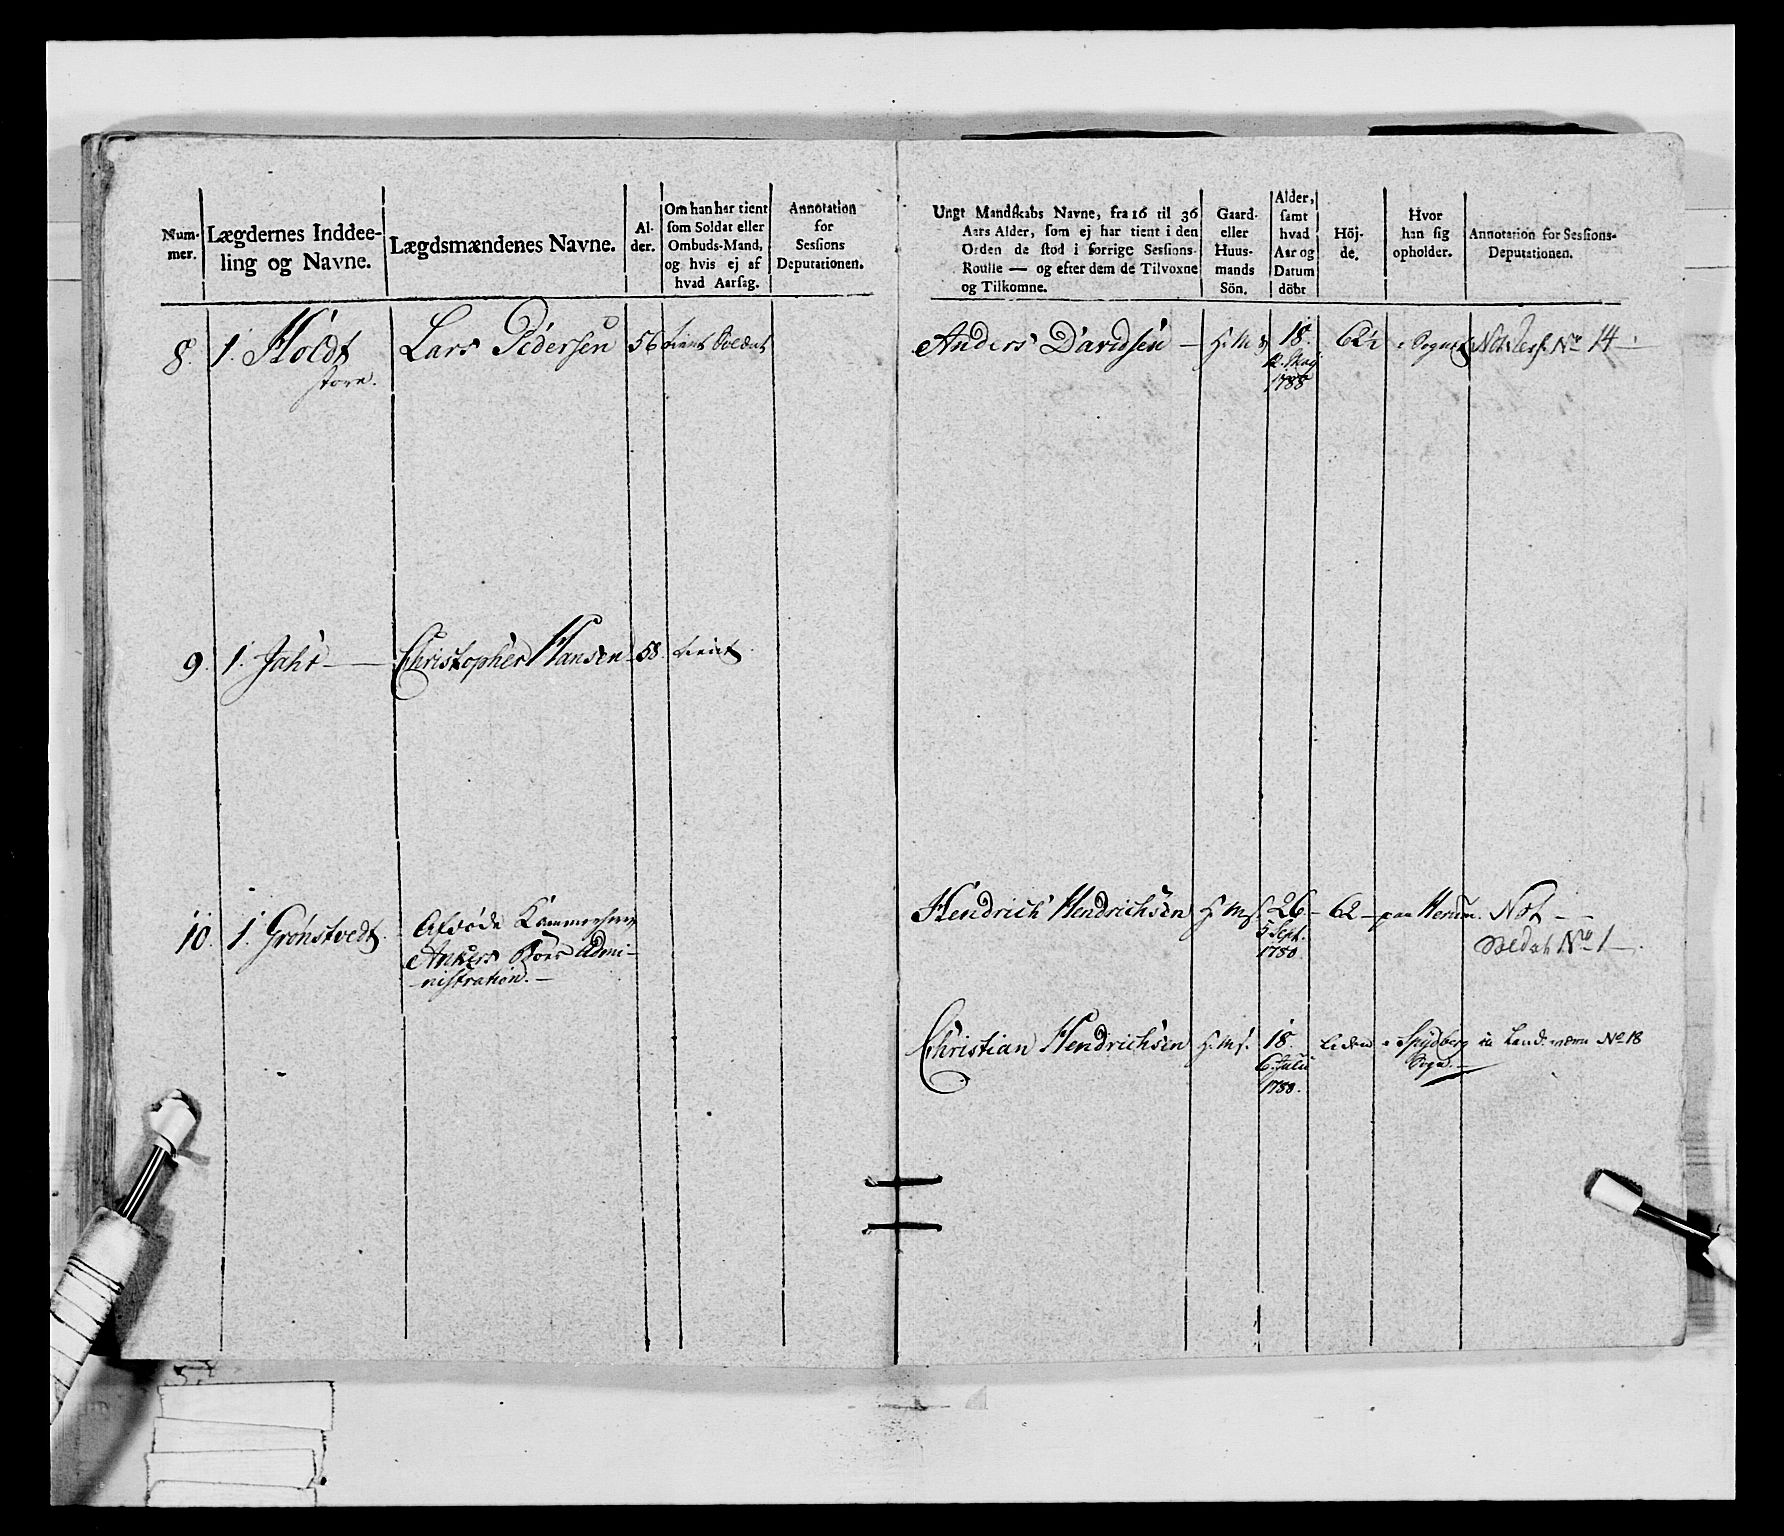 Num-
mer.
Lægdernes Inddee-
ling og Navne.
Lægdsmændenes Navne.
Al-
der.
Om han har tient
som Soldat eller
Ombuds-Mand,
og hvis ej af
hvad Aarsag.
Annotation
for
Sessions
Deputationen.
8. 1. Holdt Lars Pedersen 56 tient Soldat
store.
9. 1. Jahr — Christopher Hansen 58. tient
10. 1. Gronstvedt. Afdøde Kammerherre
Ankers Boes Admi-
nistration. —
Ungt Mandskabs Navne, fra 16 til 36
Aars Alder, som ej har tient i den
Orden de stod i forrige Sessions-
Roulle — og efter dem de Tilvoxne
og Tilkomne.
Gaard-
eller
Huus-
mands
Sön.
Alder,
samt
hvad
Aar og
Datum
döbt
Höj-
de.
Hvor
han sig
opholder.
Annotation for Sessions-
Deputationen.
Anders Davidsen — H: M 18. 62½ i Sognet No 14 —
12. Maij
1788
Hendrich Hendrichsen H: M s. 26 — 62 — paa Not —
5 Sept.
1780. No 1 —
Christian Hendrichsen H: M s. 18. liden i Spydberg Land. værn No 18
6. Julii Sogn. —
1788.